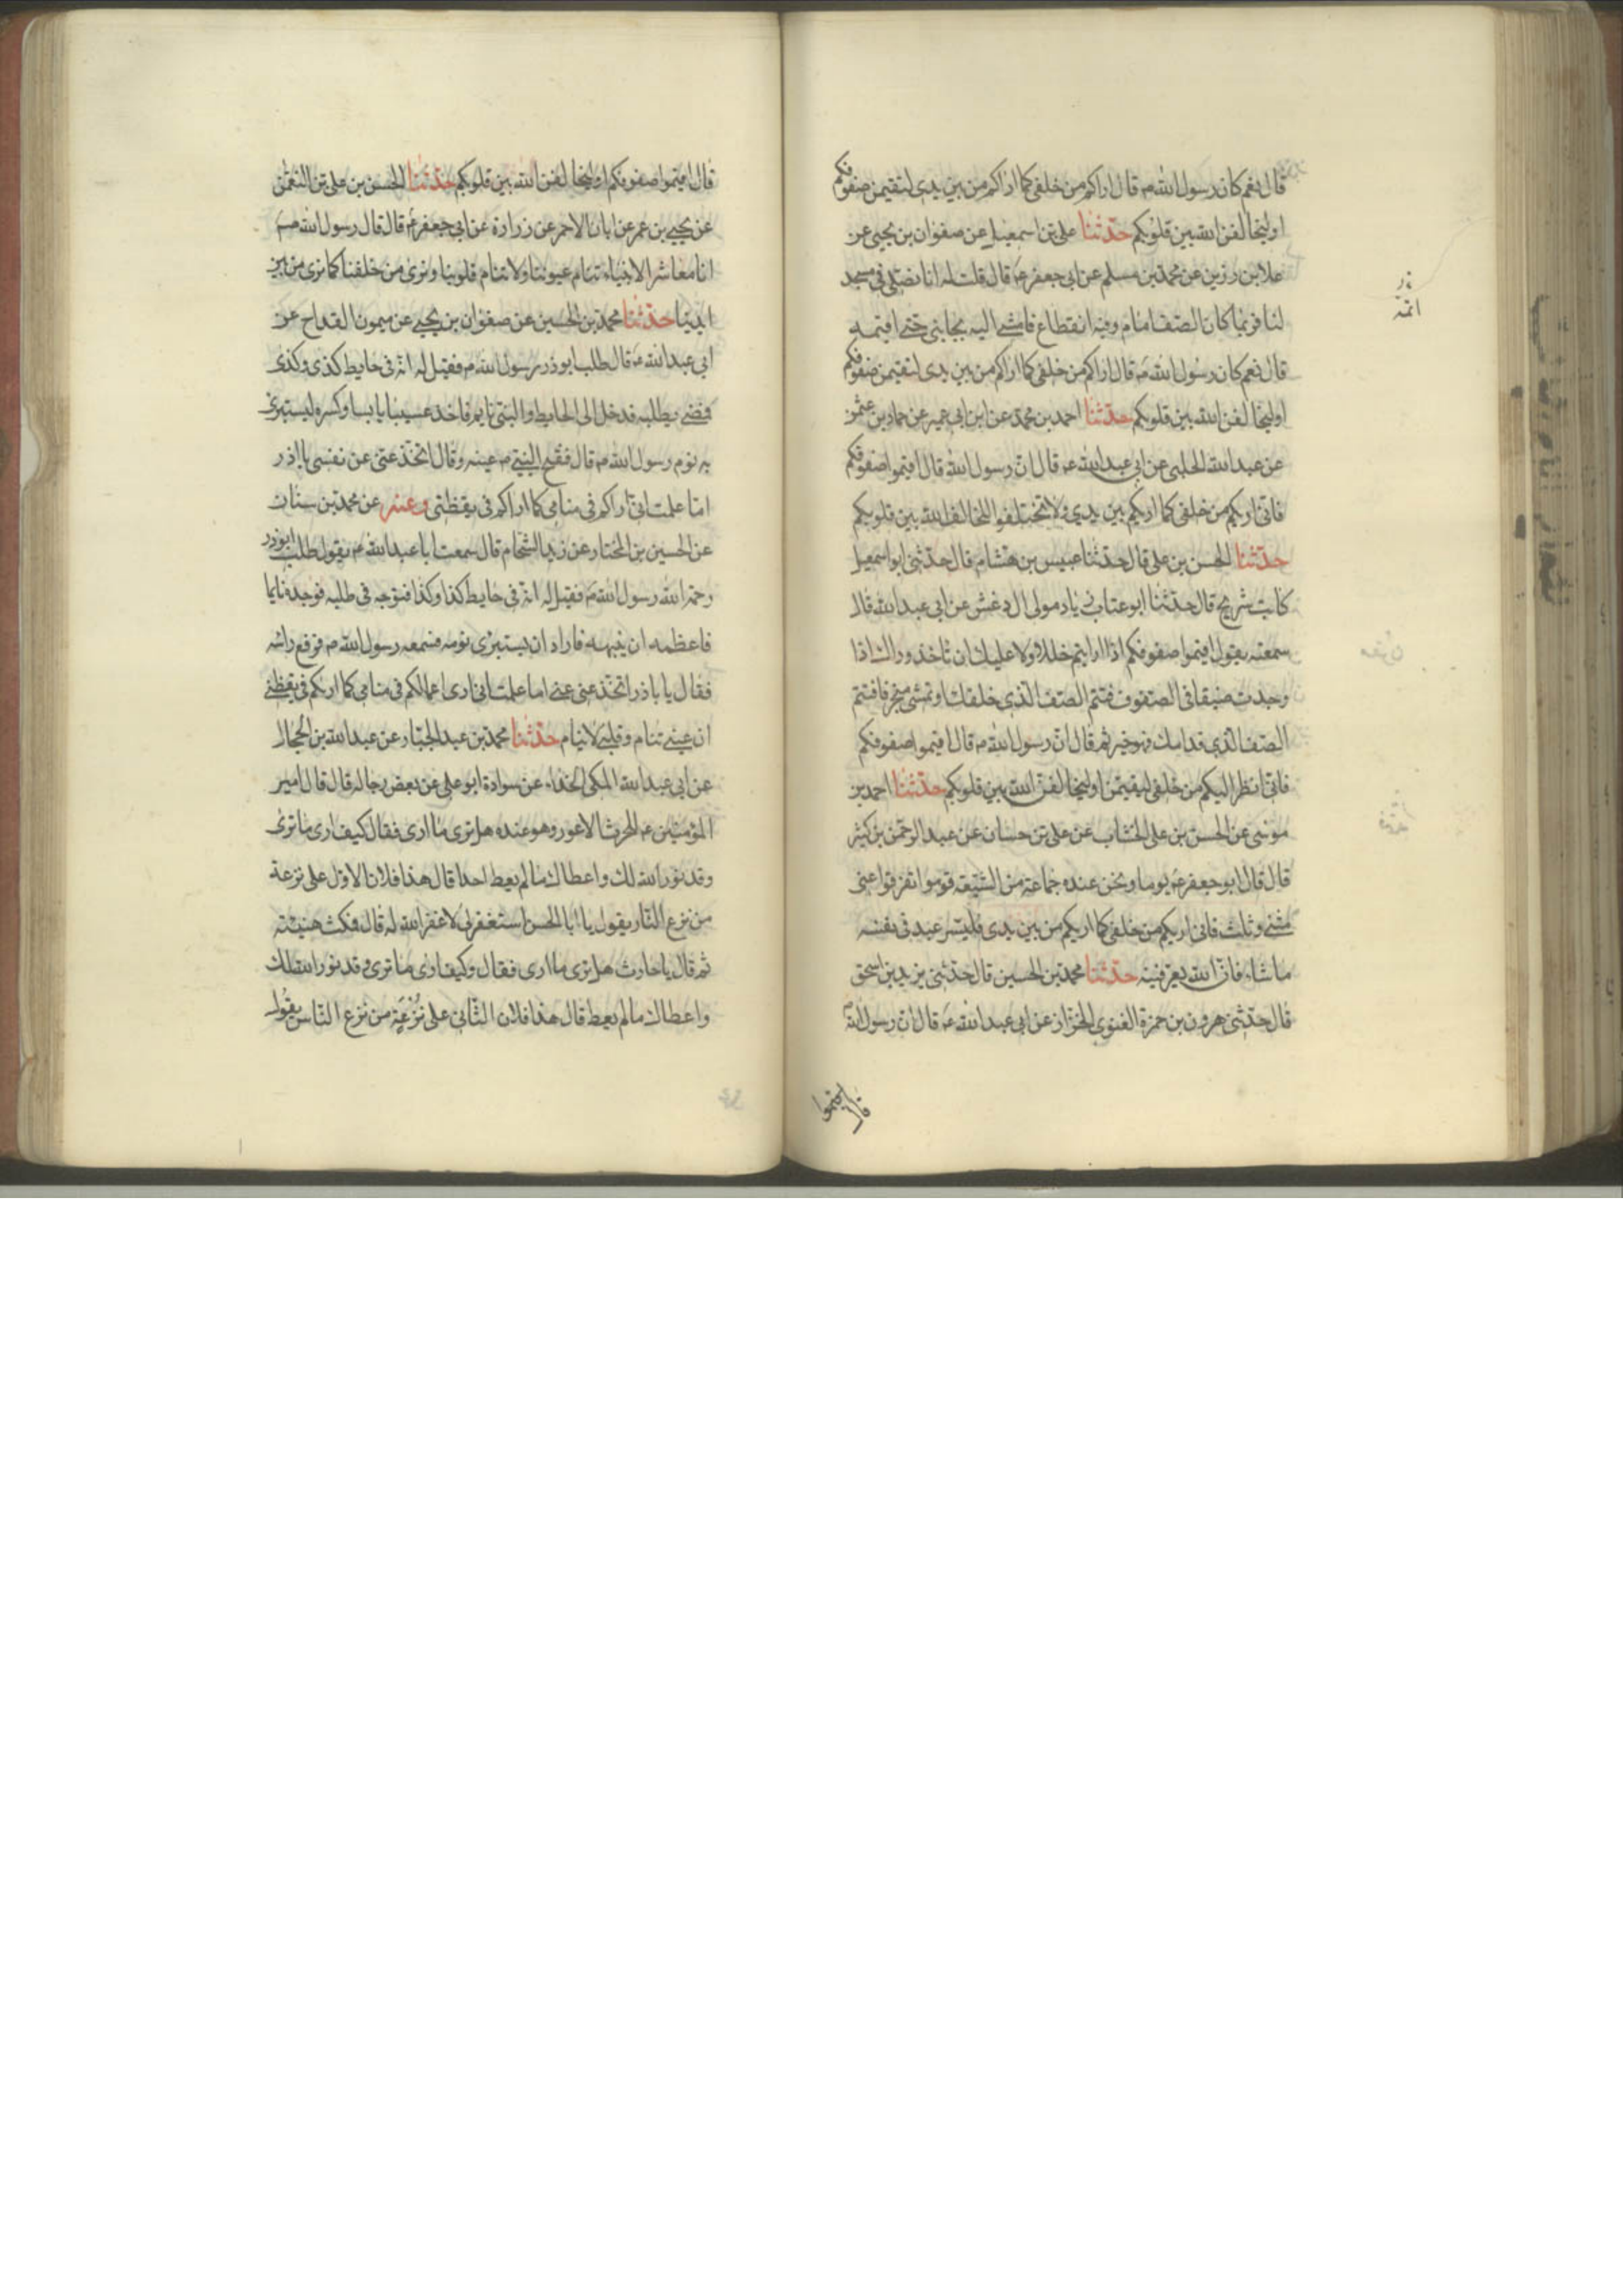 قال نعم كان رسول الله ص قال اراكم من خلفي كما اراكم من بين يدي لتقيمن صفوفكم
او ليخالفن الله بين قلوبكم حدثنا علي بن اسمعيل عن صفوان بن يحيى عن
علا بن رزين عن محمد بن مسلم عن ابي جعفر ع قال قلت له انا نصلي في مسجد
لنا فربما كان الصف امام وفيه انقطاع فامشي اليه بجانبي حتى اقيمه
قال نعم كان رسول الله ص قال اراكم من خلفي كما اراكم من بين يدي لتقيمن صفوفكم
او ليخالفن الله بين قلوبكم حدثنا احمد بن محمد عن ابن ابي عمير عن حماد بن عثمن
عن عبد الله الحلبي عن ابي عبد الله ع قال ان رسول الله قال اقيموا صفوفكم
فاني اريكم من خلفي كما اريكم بين يدي ولا تختلفوا لتخالف الله بين قلوبكم
حدثنا الحسن بن علي قال حدثنا عبيس بن هشام قال حدثني ابو اسمعيل
كاتب شريح قال حدثنا ابو عتاب زياد مولى ال دغش عن ابي عبد الله قال
سمعته يقول اقيموا صفوفكم اذا رايتم خللا ولا عليك ان تاخذ وراك اذا
وجدت ضيقا في الصفوف فتتم الصف الذي خلفك او تمشي منحرفا فتتم
الصف الذي قدامك فهو خير ثم قال ان رسول الله ص قال اقيموا صفوفكم
فاني انظر اليكم من خلفي ليقيمن او ليخالفن الله بين قلوبكم حدثنا احمد بن
موسى عن الحسن بن علي الخشاب عن علي بن حسان عن عبد الرحمن بن كثير
قال قال ابو جعفر ع يوما ونحن عنده جماعة من الشيعة قوموا تفرقوا عني
مثنى وثلث فاني اريكم من خلفي كما اريكم من بين يدي فليسر عبد في نفسه
ما شاء فان الله يعرفنيه حدثنا محمد بن الحسين قال حدثني يزيد بن اسحق
قال حدثني هرون بن حمزة الغنوي الخزاز عن ابي عبد الله ع قال ان رسول الله ص
قال اقيموا
قال اقيموا صفوفكم او ليخالفن الله بين قلوبكم حدثنا الحسن بن علي بن النعمن
عن يحيى بن عمر عن ابان الاحمر عن زرارة عن ابي جعفر ع قال قال رسول الله ص
انا معاشر الانبياء تنام عيوننا ولا تنام قلوبنا ونرى من خلفنا كما نرى من بين
ايدينا حدثنا محمد بن الحسين عن صفوان بن يحيى عن ميمون القداح عن
ابي عبد الله ع قال طلب ابو ذر رسول الله ص فقيل له انه في حايط كذى وكذى
فمضى يطلبه فدخل الى الحايط والنبي نايم فاخذ عسيبا يابسا وكسره ليستبرئ
به نوم رسول الله ص قال ففتح النبي ص عينه وقال اتخذعني عن نفسي يا اذر
اما علمت اني اراكم في منامي كما اراكم في يقظتي وعنه عن محمد بن سنان
عن الحسين بن المختار عن زيد الشحام قال سمعت ابا عبد الله ع يقول طلب ابو ذر
رحمه الله رسول الله ص فقيل له انه في حايط كذا وكذا فتوجه في طلبه فوجده نايما
فاعظمه ان ينبهه فاراد ان يستبرئ نومه فسمعه رسول الله ص فرفع راسه
فقال يا باذر اتخذعني عني اما علمت اني ارى اعمالكم في منامي كما اريكم في يقظتي
ان عيني تنام وقلبي لا ينام حدثنا محمد بن عبد الجبار عن عبد الله بن الحجال
عن ابي عبد الله المكي الحذاء عن سوادة ابو علي عن بعض رجاله قال قال امير
المؤمنين ع للحرث الاعور وهو عنده هل ترى ما ارى فقال كيف ارى ما ترى
وقد نور الله لك واعطاك ما لم يعط احدا قال هذا فلان الاول على نزعة
من نزع النار يقول يا ابا الحسن استغفر لي لا غفر الله له قال فمكث هنيئة
ثم قال يا حارث هل ترى ما ارى فقال وكيف ارى ما ترى وقد نور الله لك
واعطاك ما لم يعط قال هذا فلان الثاني على نزعة من نزع النار يقول